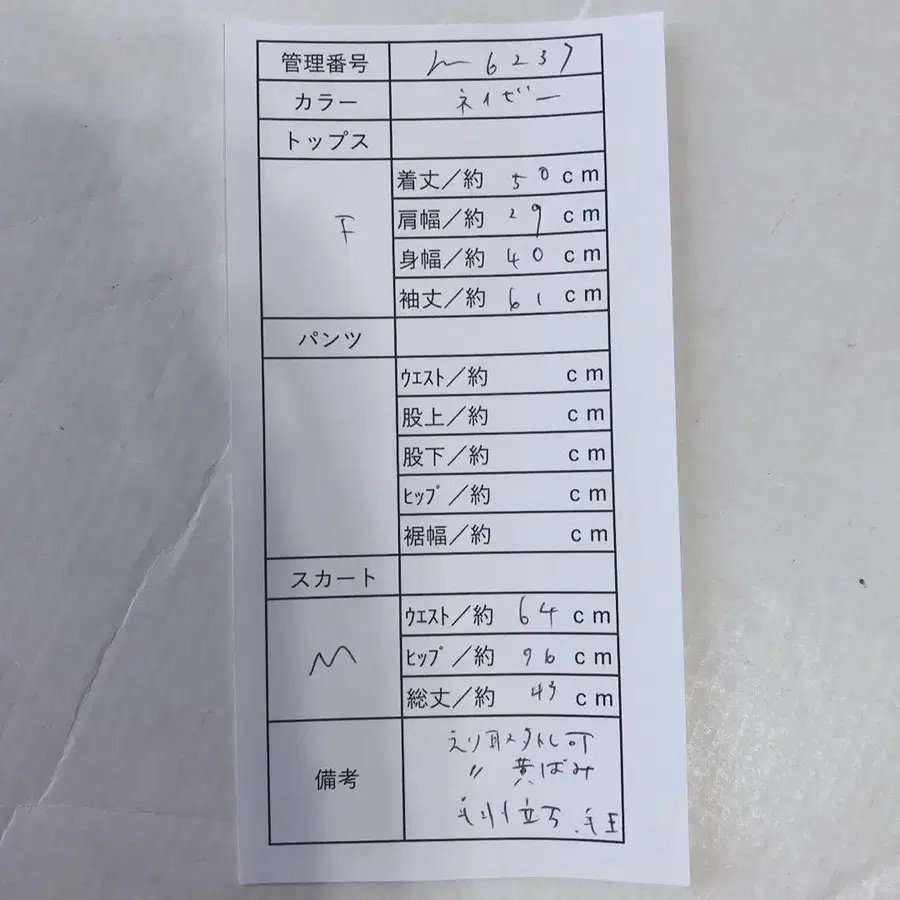 管理番号 m6237
カラー ネイビー
トップス
F
着丈／約 50 cm
肩幅／約 29 cm
身幅／約 40 cm
袖丈／約 61 cm
パンツ
ｳｴｽﾄ／約 cm
股上／約 cm
股下／約 cm
ﾋｯﾌﾟ／約 cm
裾幅／約 cm
スカート
M
ｳｴｽﾄ／約 64 cm
ﾋｯﾌﾟ／約 96 cm
総丈／約 43 cm
備考
えり取外し可
〃 黄ばみ
毛羽立ち.毛玉